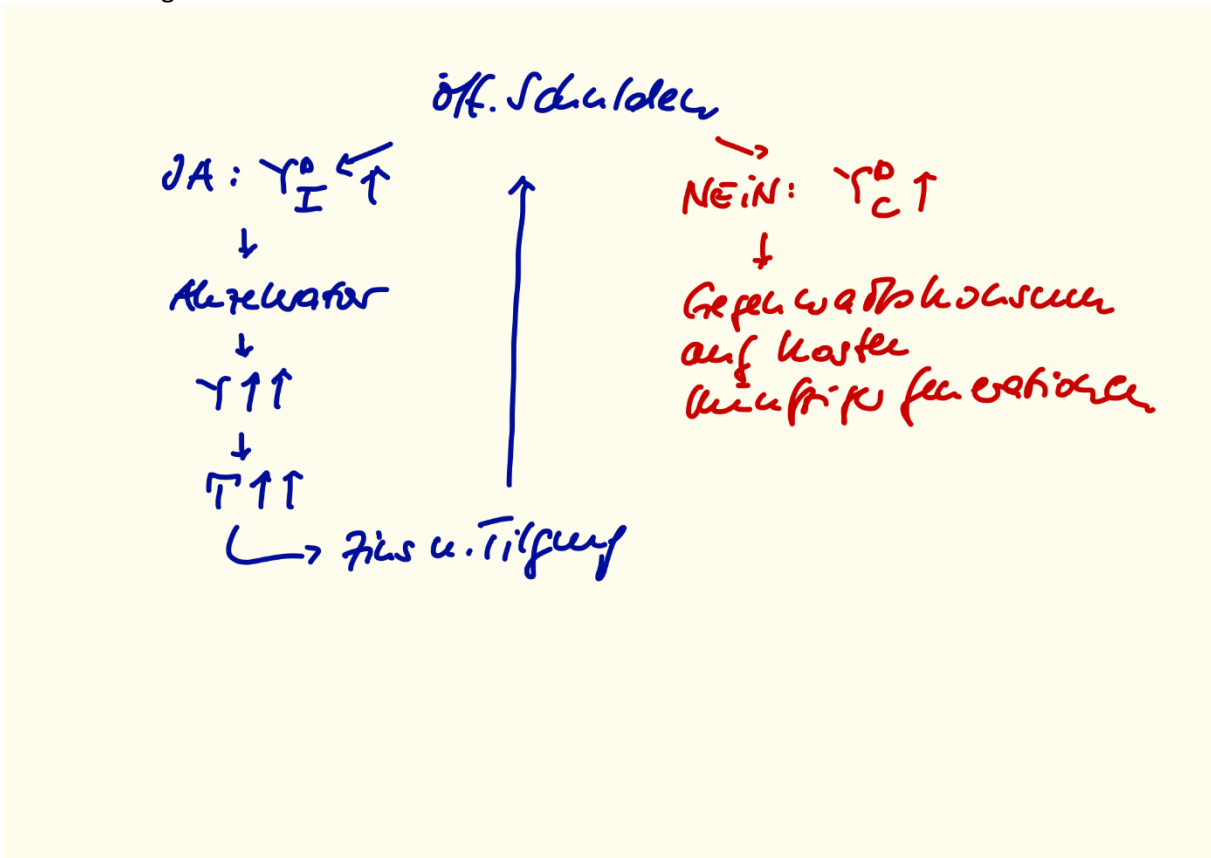 öff. Schulden
JA: Y^D_I ↑
↓
Akzelerator
↓
Y↑↑
↓
T↑↑
→ Zins u. Tilgung
NEiN: Y^D_C ↑
↓
Gegenwartskonsum
auf Kosten
künftiger Generationen